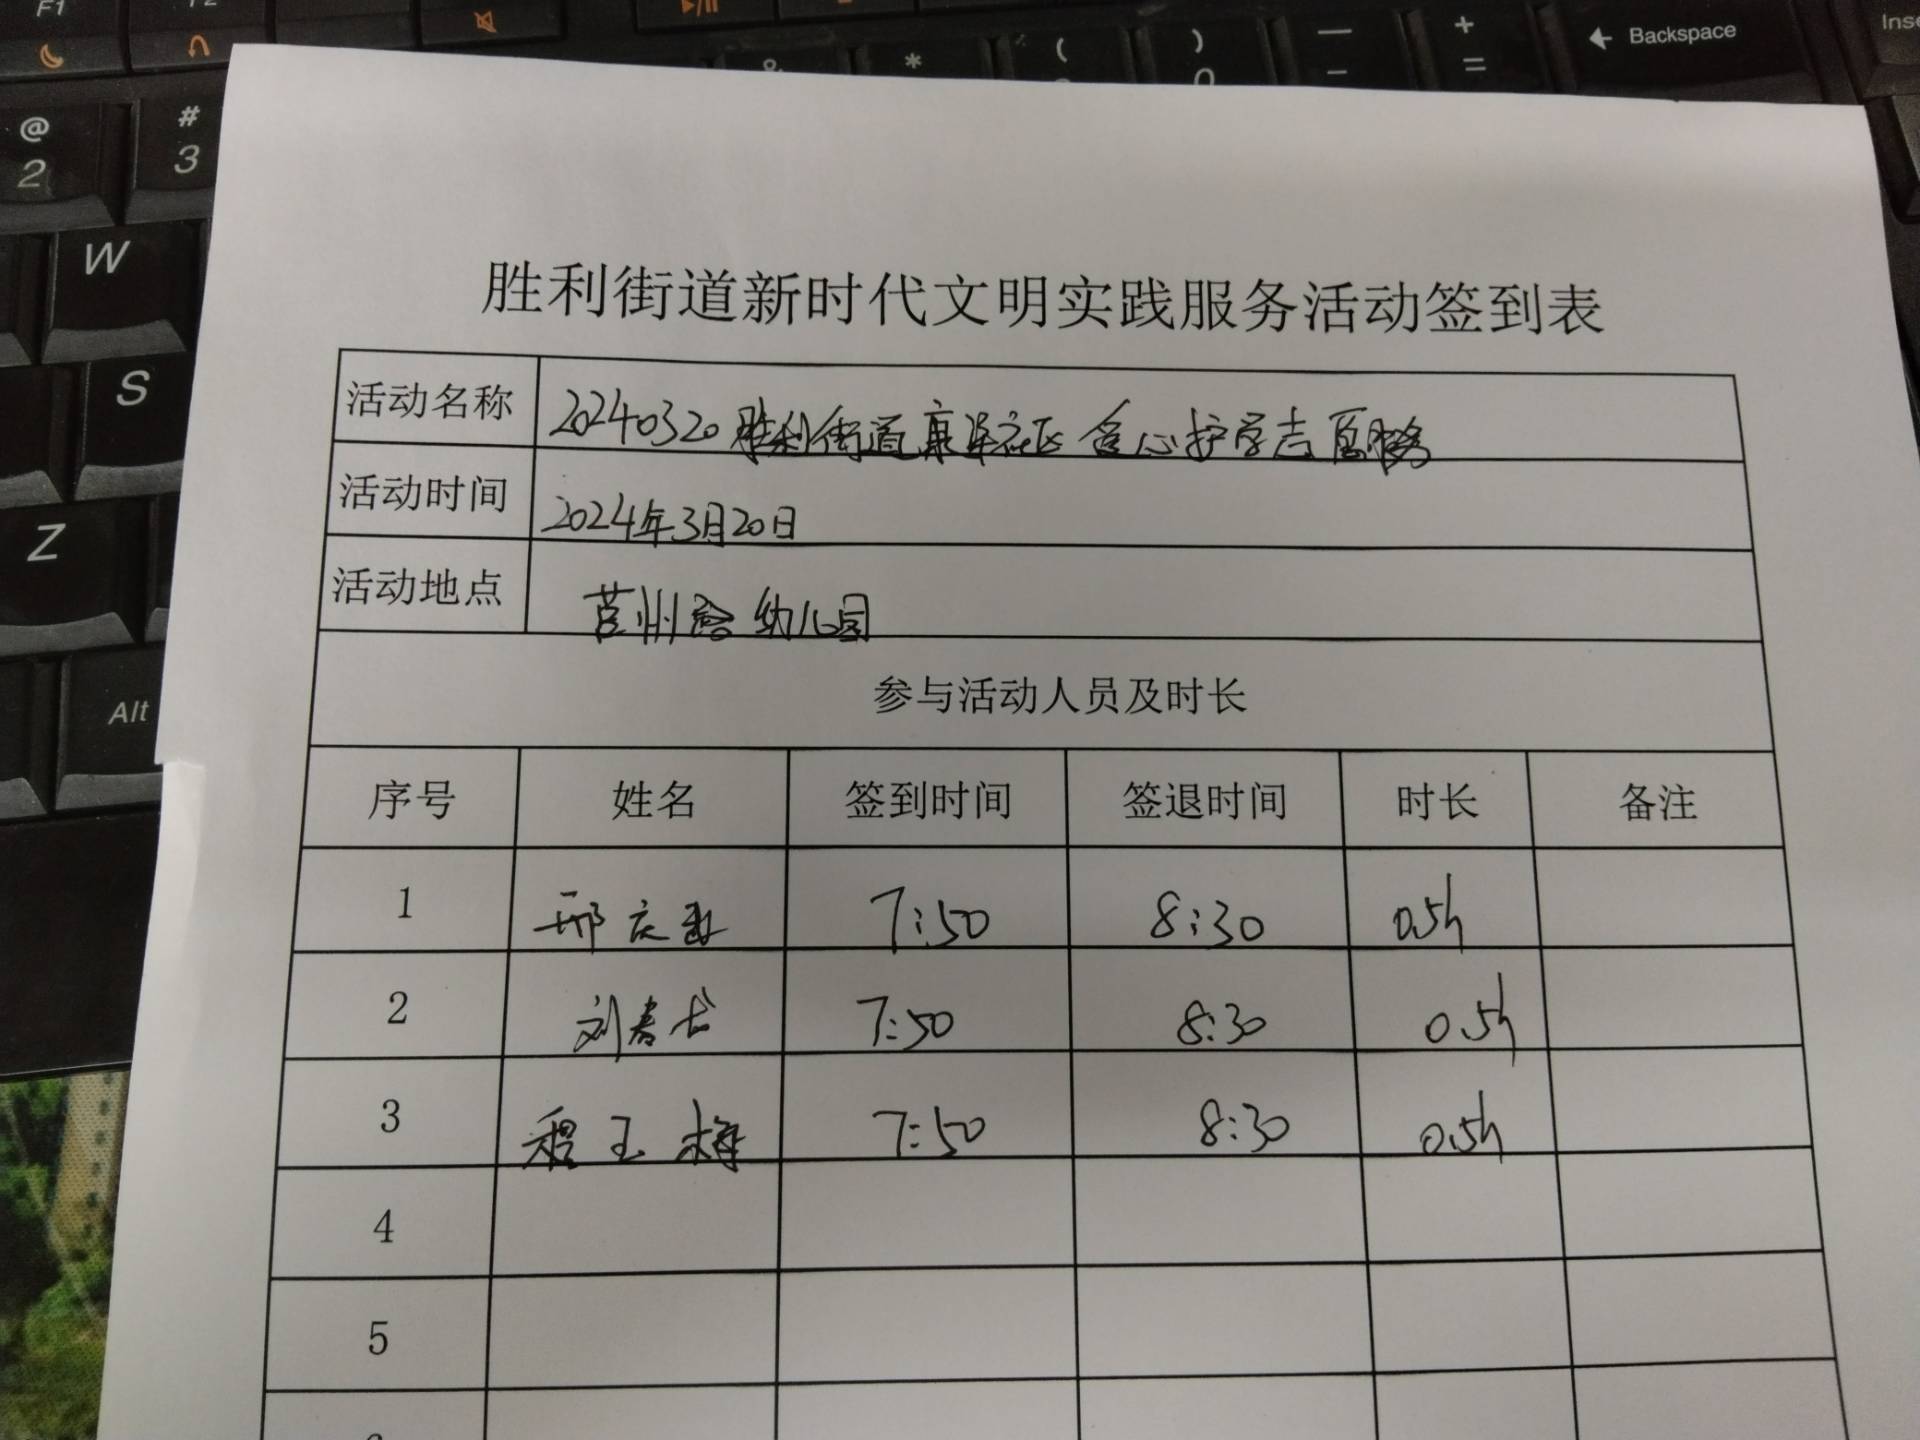 F1
F2
@
2
#
3
&
*
(
)
0
—
-
+
=
Backspace
Inse
W
S
Z
Alt
胜利街道新时代文明实践服务活动签到表
活动名称 20240320胜利街道康泽社区 心护学志愿服务
活动时间 2024年3月20日
活动地点 莒州路幼儿园
参与活动人员及时长
序号 姓名 签到时间 签退时间 时长 备注
1 邢庆 7:50 8:30 0.5h
2 刘春 7:50 8:30 0.5h
3 程玉梅 7:50 8:30 0.5h
4
5